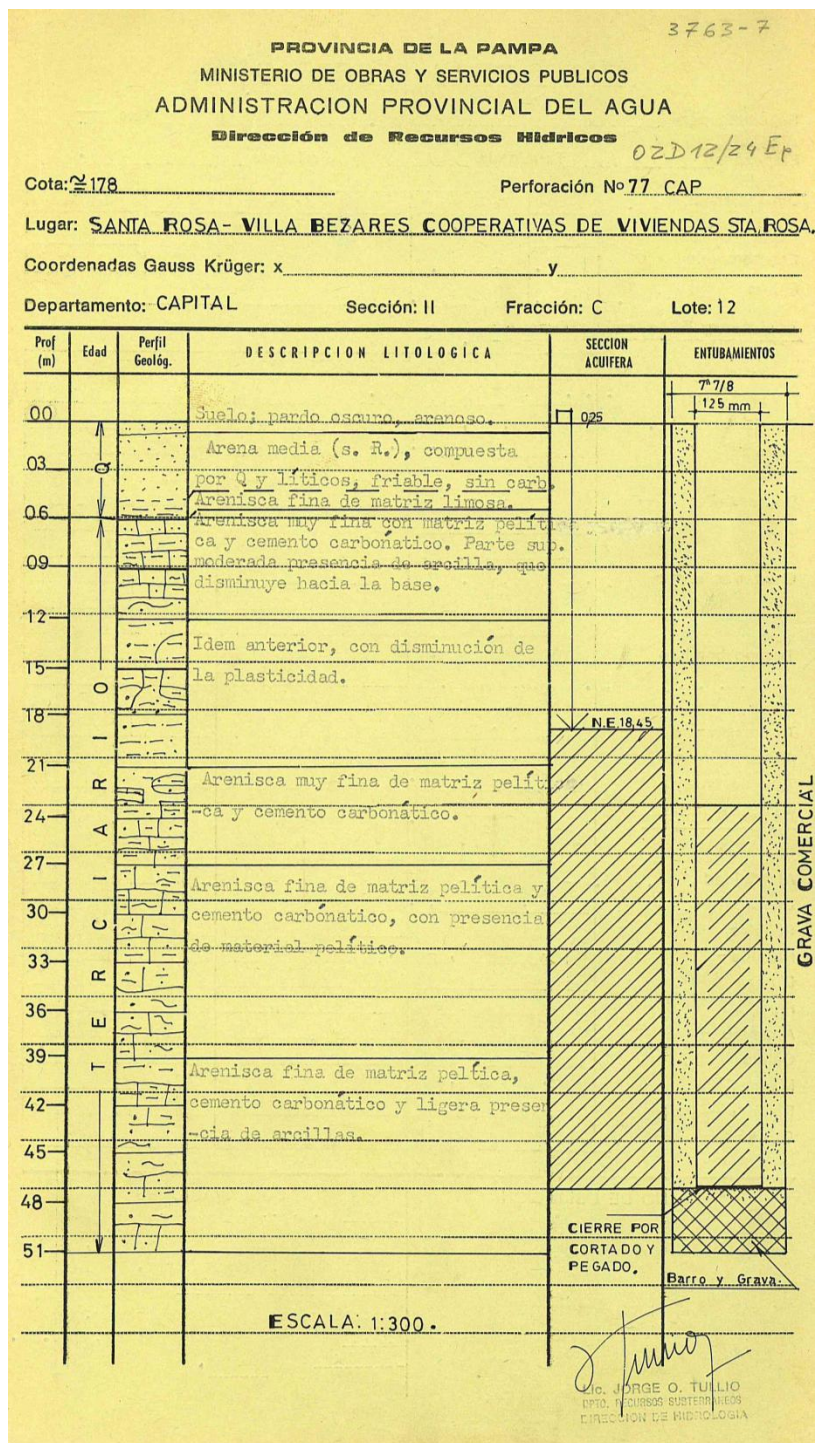 3763-7
PROVINCIA DE LA PAMPA
MINISTERIO DE OBRAS Y SERVICIOS PUBLICOS
ADMINISTRACION PROVINCIAL DEL AGUA
Dirección de Recursos Hidricos
02D12/24 Ep
Cota: ≅178 Perforación Nº 77 CAP
Lugar: SANTA ROSA- VILLA BEZARES COOPERATIVAS DE VIVIENDAS STA. ROSA.
Coordenadas Gauss Krüger: x y
Departamento: CAPITAL Sección: II Fracción: C Lote: 12
Prof (m) Edad Perfil Geológ. DESCRIPCION LITOLOGICA SECCION ACUIFERA ENTUBAMIENTOS
7" 7/8
125 mm
00 Suelo; pardo oscuro, arenoso. 0,25
Q
Arena media (s. R.), compuesta
03
por Q y líticos, friable, sin carb.
Arenisca fina de matriz limosa.
06
Arenisca muy fina con matriz pelíti
ca y cemento carbonático. Parte sup.
09 moderada presencia de arcilla, que
disminuye hacia la base.
12
Idem anterior, con disminución de
15 la plasticidad.
18 N.E.18,45
21
Arenisca muy fina de matriz pelíti
24 -ca y cemento carbonático.
27
Arenisca fina de matriz pelítica y
30 cemento carbónatico, con presencia
33 de material pelítico.
36
39
Arenisca fina de matriz peltica,
42 cemento carbonático y ligera presen
-cia de arcillas.
45
48
51
TERCIARIO
GRAVA COMERCIAL
CIERRE POR
CORTADO Y
PEGADO.
Barro y Grava.
ESCALA: 1:300.
Lic. JORGE O. TULLIO
DPTO. RECURSOS SUBTERRANEOS
DIRECCION DE HIDROLOGIA